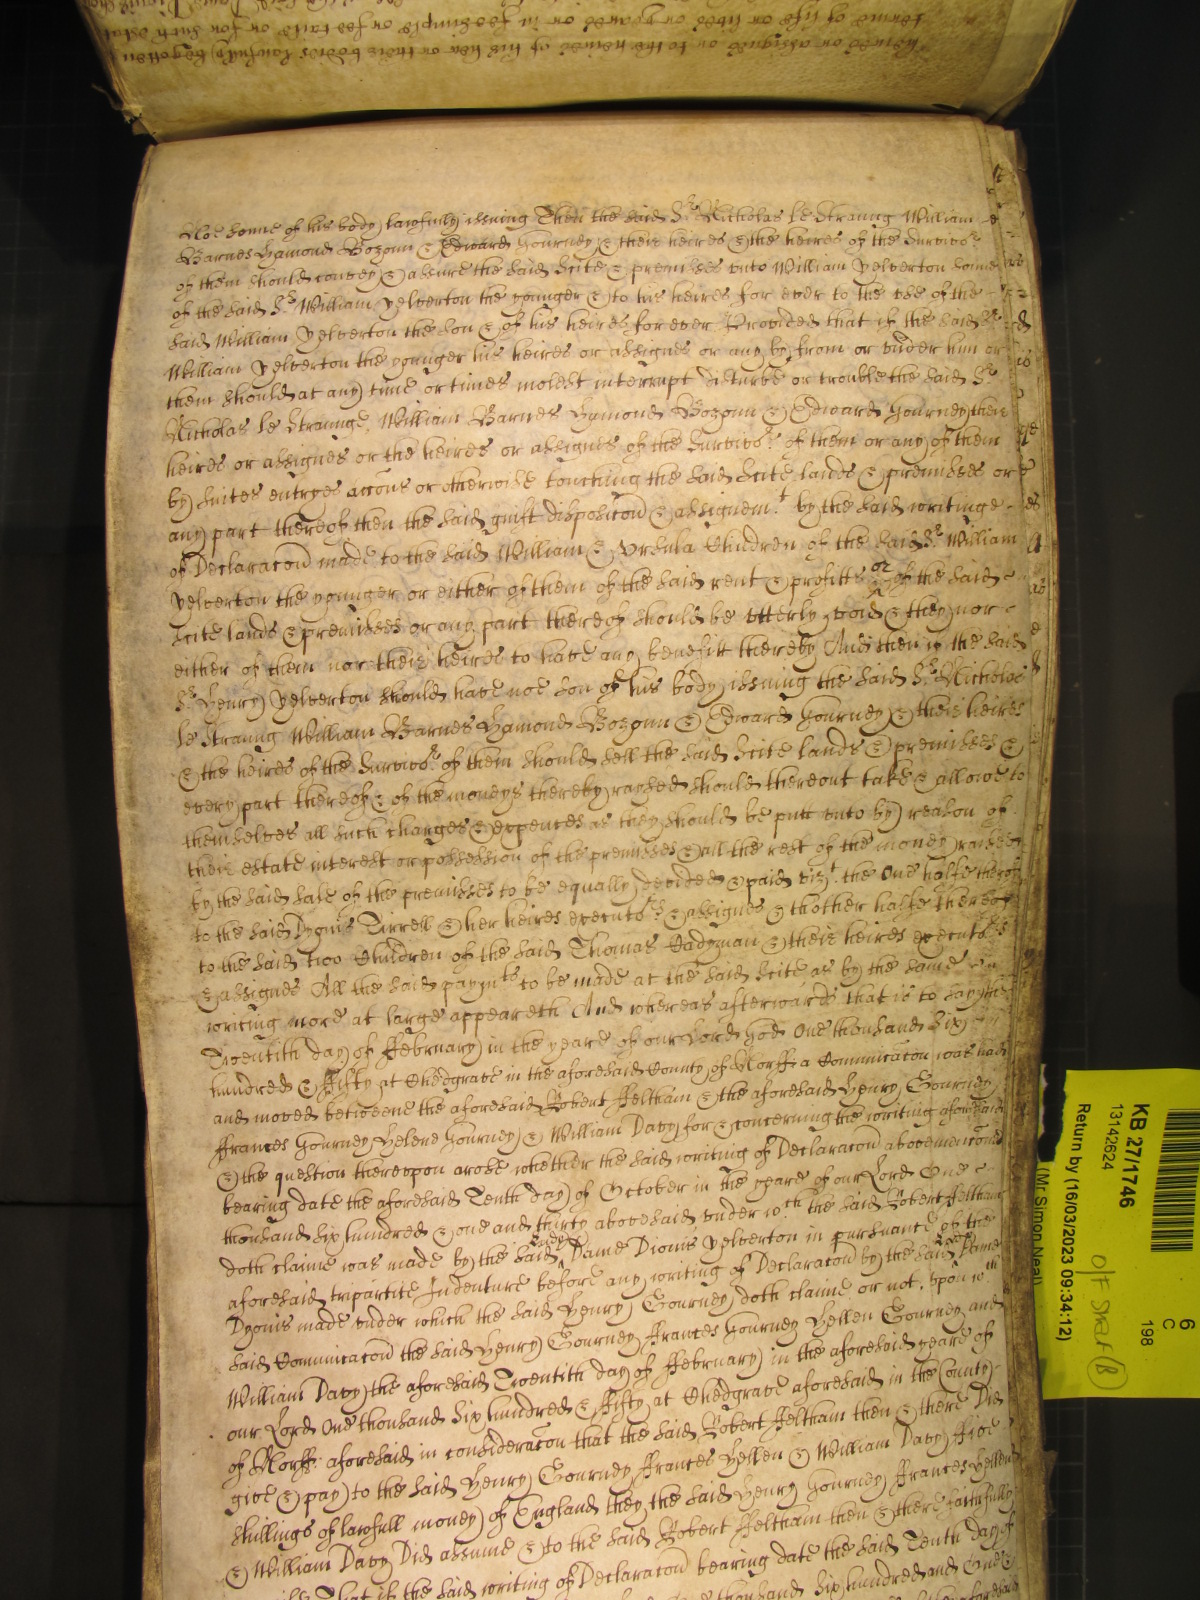 terme of life or lives or yeares or in fee simple or fee taile or for such estat
heires or assignes or to the heires of his her or their bodies lawfully begotten
Noe sonne of his body lawfully issuing Then the said Sr. Nicholas le Straung William
Barnes Hamond Bozoun & Edward Gourney & their heires & the heires of the Survivor
of them should convey & assure the said Scite & premisses unto William Yelverton sonne
of the said Sr. William Yelverton the younger & to his heires for ever to the use of the
said William Yelverton the son & of his heires for ever Provided that if the said Sr.
William Yelverton the younger his heires or assignes or any by from or under him or
them should at any time or times molest interrupt disturbe or trouble the said Sr.
Nicholas le Straunge, William Barnes Hamond Bozoun & Edward Gourney their
heires or assignes or the heires or assignes of the Survivor of them or any of them
by suites entryes accons or otherwise touching the said Scite lands & premisses or
any part thereof then the said guift disposicon & assignemt. by the said writinge
of Declaracon made to the said William & Ursula Children of the said Sr. William
Yelverton the younger or either of them of the said rent & profitts or of the said
Scite lands & premisses or any part thereof should be utterly void & they nor
either of them nor their heires to have any benefitt thereby And then if the said
Sr. Henry Yelverton should have noe son of his body issuing the said Sr. Nicholas
le Straung William Barnes Hamond Bozoun & Edward Gourney & their heires
& the heires of the Survivor of them should sell the said Scite lands & premisses &
every part thereof & of the moneys thereby raysed should thereout take & allowe to
themselves all such charges & expences as they should be putt unto by reason of
their estate interest or possession of the premisses & all the rest of the money raised
by the said sale of the premisses to be equally devided & paid vizt. the One halfe thereof
to the said Dygnis Tirrell & her heires executors & assignes & thother halfe thereof
to the said two Children of the said Thomas Cadyman & their heires executors
& assignes All the said paymts to be made at the said Scite as by the same
writing more at large appeareth And whereas afterwards that is to say the
Twentith day of February in the yeare of our Lord God One thousand Six
hundred & ffifty at Chedgrave in the aforesaid County of Norff a Comunicacon was had
and moved betweene the aforesaid Robert ffeltham & the aforesaid Henry Gourney
ffrances Gourney Helene Gourney & William Davy for & concerning the writing aforesaid
& the question thereupon arose whether the said writing of Declaracon abovemenconed
bearing date the aforesaid Tenth day of October in the yeare of our Lord One
thousand Six hundred & one and thirty abovesaid under wch the said Robert ffeltham
doth claime was made by the said Lady Dame Dionis Yelverton in pursuance of the
aforesaid tripartite Indenture before any writing of Declaracon by the said Lady Dame
Dyonis made under which the said Henry Gourney doth claime or not, upon wch
said Comunicacon the said Henry Gourney ffrances Gourney Hellen Gourney and
William Davy the aforesaid Twentith day of ffebruary in the aforesaid yeare of
our Lord One thousand Six hundred & ffifty at Chedgrave aforesaid in the County
of Norff aforesaid in consideracon that the said Robert ffeltham then & there Did
give & pay to the said Henry Gourney ffrances Hellen & William Davy ffive
shillings of lawfull money of England they the said Henry Gourney ffrances Hellen
& William Davy Did assume & to the said Robert ffeltham then & there faithfully
That if the said writing of Declaracon bearing date the said Tenth day of
thousand Six hundred and One &
KB 27/1746
13142624
Return by (16/03/2023 09:34:12)
(Mr Simon Neal)
6
C
198
O/F Shelf (B)